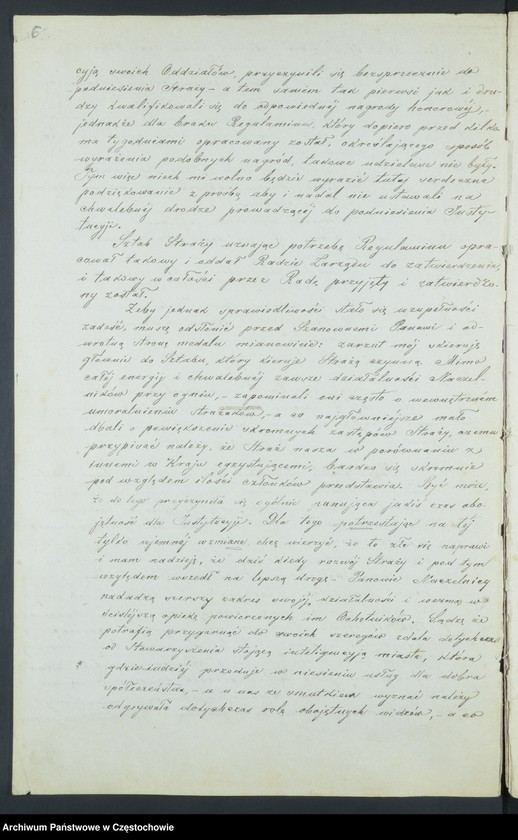 6
cyją swoich Oddziałów, przyczynili się bezsprzecznie do
podniesienia Straży – a tem samem tak pierwsi jak i dru-
dzy kwalifikowali się do odpowiedniej nagrody honorowej,
jednakże dla braku Regulaminu, który dopiero przed kilko-
ma tygodniami opracowany został, określającego sposób
wyrażenia podobnych nagród, takowe udzielane nie były.
Tym więc niech mi wolno będzie wyrazić tutaj serdeczne
podziękowanie z prośbą aby i nadal nie ustawali na
chwalebnej drodze prowadzącej do podniesienia Insty-
tucyji.
Sztab Straży uznając potrzebę Regulaminu opra-
cował takowy i oddał Radzie Zarządu do zatwierdzenia,
i takowy w całości przez Radę przyjęty i zatwierdzo-
ny został.
Żeby jednak sprawiedliwości stało się w zupełności
zadość, muszę odsłonić przed Szanownemi Panami i od-
wrotną stronę medalu mianowicie: zarzut mój skieruję
głównie do Sztabu, który kieruje Strażą czynną. Mimo
całej energiji i chwalebnej zawsze działalności Naczel-
ników przy ogniu, – zapominali oni często o wewnętrznem
umoralnieniu Strażaków, – a co najgłówniejsze mało
dbali o powiększenie skromnych zastępów Straży, czemu
przypisać należy, że Straż nasza w porównaniu z
innemi w Kraju egzystującemi, bardzo się skromnie
pod względem ilości członków przedstawia. Być może,
że do tego przyczyniła się ogólnie panująca jakiś czas obo-
jętność dla Instytucyji. Dla tego poprzestając na tej
tylko ujemnej wzmiance, chcę wierzyć, że to złe się naprawi
i mam nadzieję, że dziś kiedy rozwój Straży i pod tym
względem wszedł na lepszą drogę – Panowie Naczelnicy
nadadzą szerszy zakres swojej działalności i wezmą w
ściślejszą opiekę powierzonych im Ochotników. Sądzę że
potrafią przygarnąć do swoich szeregów zdala dotychczas
od Stowarzyszenia stojącą inteligencyją miasta, która
gdzieindziej przoduje w niesieniu usług dla dobra
społeczeństwa, – a u nas ze smutkiem wyznać należy
odgrywała dotychczas rolę obojętnych widzów, – a co
Archiwum Państwowe w Częstochowie